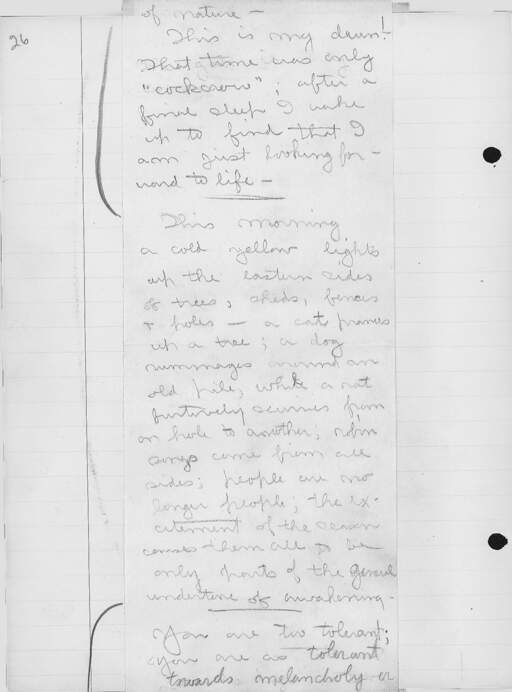 26
of nature —
This is my dawn!
That time was only
"cockcrow"; after a
final sleep I wake
up to find that I
am just looking for-
ward to life —
This morning
a cold yellow lights
up the eastern sides
of trees, sheds, fences
+ poles — a cat prances
up a tree; a dog
rummages around an
old pile, while a rat
furtively scurries from
on hole to another; robin
songs come from all
sides; people are no
longer people; the ex-
citement of the season
causes them all to be
only parts of the general
undertone of awakening —
You are too tolerant;
you are as tolerant
towards melancholy or